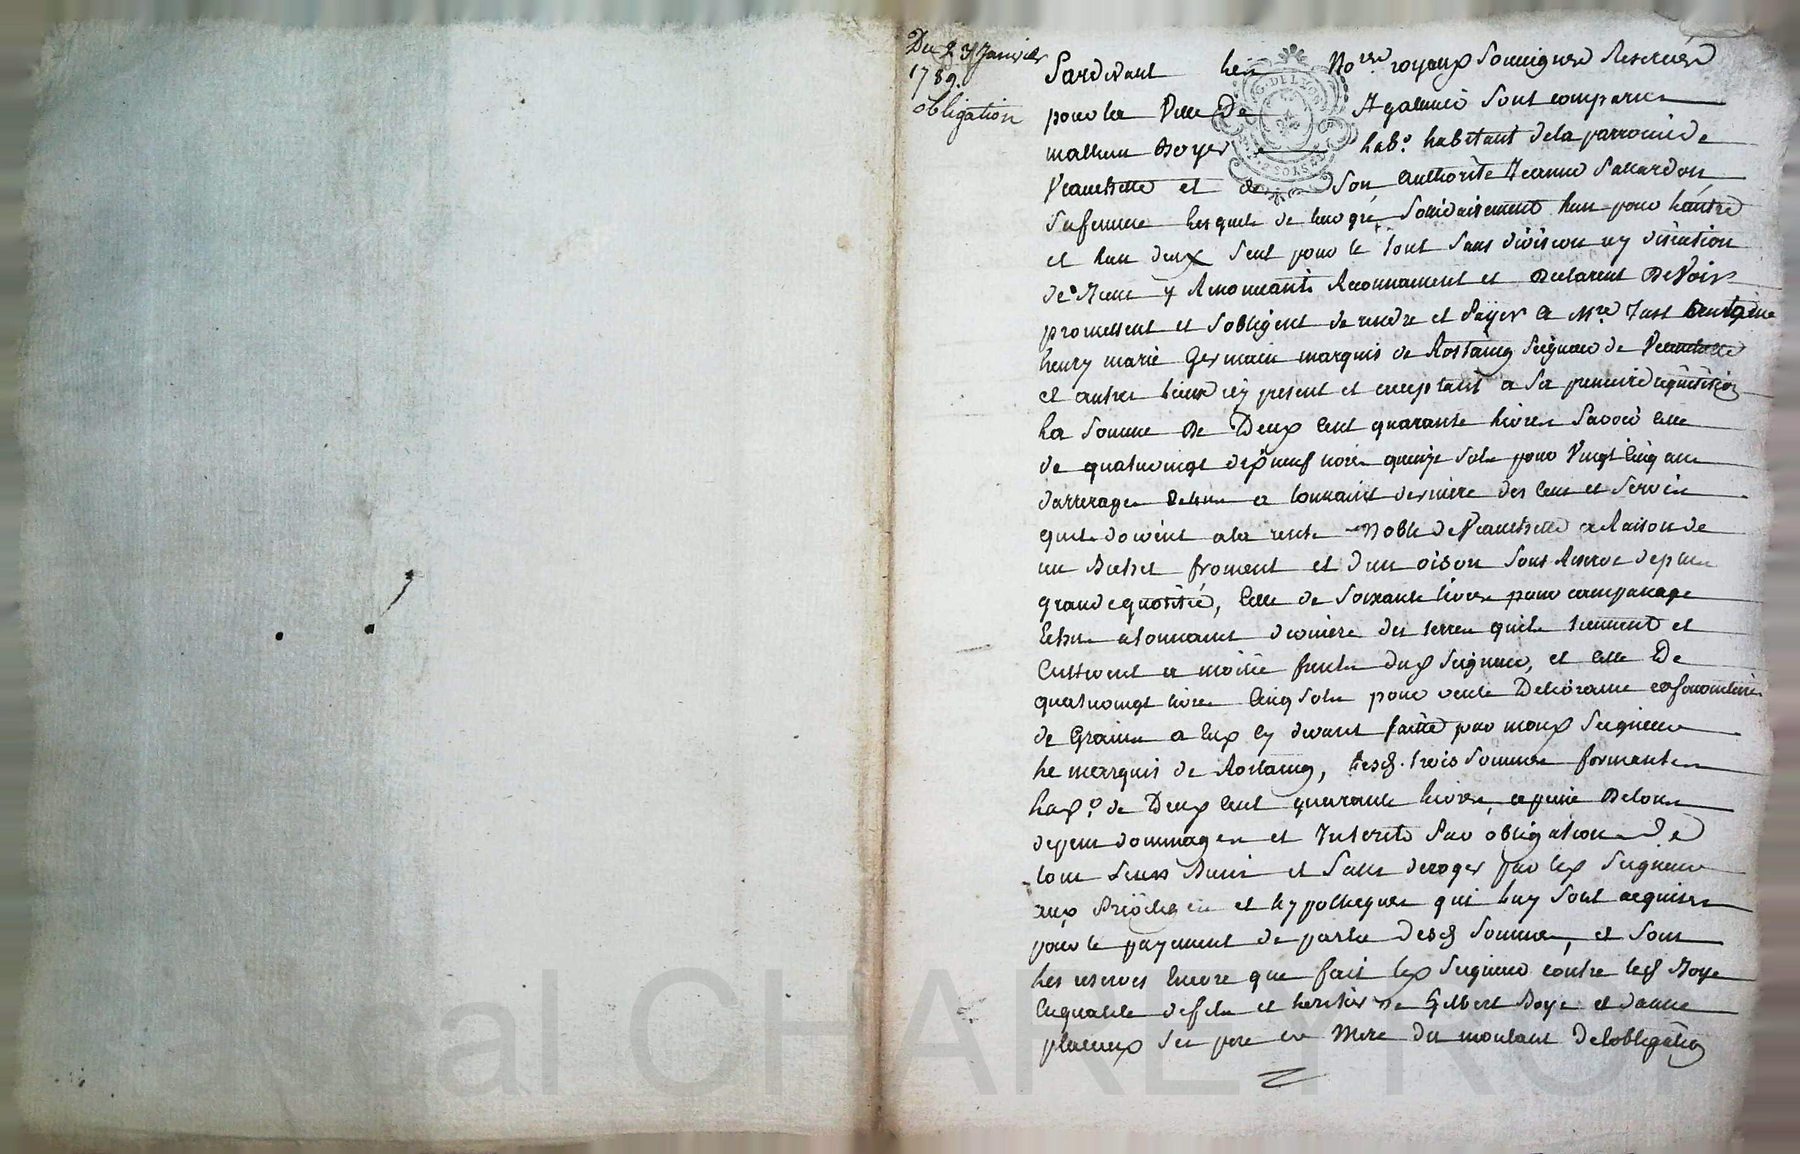 Du 23 Janvier
1789.
obligation
Pardevant les No.res royaux Soussignés Reservés
pour la Ville De St Galmier Sont comparus
mathieu Boyer hab.t habitant dela parroisse de
Veauchette et de Son authorité Jeanne
Sa femme lesquels de leur gré Solidairement lun pour lautre
et lun deux Seul pour le tout Sans division ny discution
de Biens y Renonceants Reconnaissent et Declarent DeVoir
promettent et Sobligent de rendre et payer a M.re Just antoine
henry marie Germain marquis de Rostaing Seigneur de Veauchette
et autres lieux icy present et acceptant a Sa premiere requisition
La Somme De Deux Cent quarante livres Savoir Celle
de quatrevingt dixneuf livres quinze Sols pour Vingt Cinq ans
darrerages Echus a toussaint derniere des Cens et Servis
quils doivent ala rente Noble de Veauchette a Raison de
un Bichet froment et dun oison Sous Reserve deplus
grande quotité, Celle de Soixante livres pour
Echus atoussaint derniere des terres quils tiennent et
Cultivent a moitié fruits dud Seigneur, et Celle De
quatrevingt livres Cinq Sols pour vente Delivrance
de Grains a Eux Cy devant faitte par mond Seigneur
Le marquis de Rostaing, Lesd. trois Sommes formantes
Lad.e de Deux Cent quarante livres, apeine Detous
depens dommages et Interets Par obligation De
tous Leurs Biens et Sans deroger par led Seigneur
aux Privileges et hypotheques qui luy Sont acquises
pour le payement de partie Desd Sommes, et Sous
Les reserves Encore que fait led Seigneur contre lesd Boye
Enqualité defils et heritier De Gilbert Boye et danne
Ses pere et Mere du montant Delobligation